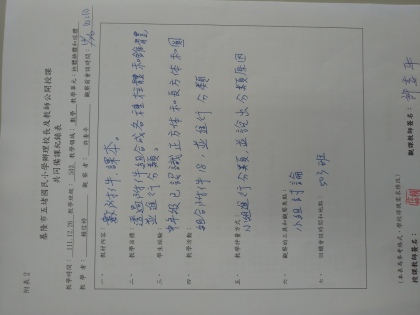 附表2
基隆市五堵國民小學辦理校長及教師公開授課
共同備課紀錄表
教學時間：111.12.26 教學班級：503 教學領域：數學 教學單元：柱體錐體和球體
教學者：賴信婷 觀察者：許 觀察前會談時間：
一、教材內容：
數附件、課本。
二、教學目標：
透過附件組合成各種柱體和錐體
並進行分類。
三、學生經驗：
中年級已認識正方體和長方體和圓
四、教學活動：
組合附件18，並進行分類
五、教學評量方式：
小組進行分類，並說出分類原因
六、觀察的工具和觀察焦點：
小組討論
七、回饋會談時間和地點：
503班
（本表為參考格式，學校得視需求修改）
授課教師簽名： 觀課教師簽名：許